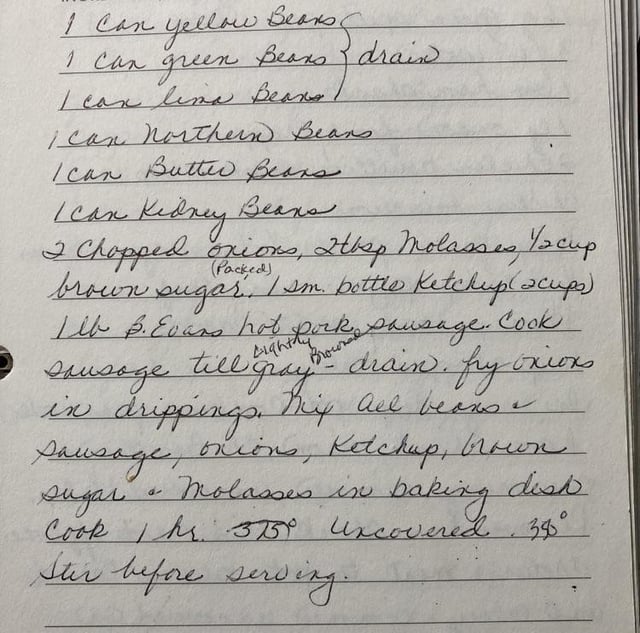 1 Can yellow Beans
1 Can green Beans } drain
1 can lima Beans
1 can Northern Beans
1 can Butter Beans
1 can Kidney Beans
2 Chopped onions, 2 tbsp Molasses, 1/2 cup
(Packed)
brown sugar, 1 sm. bottle Ketchup (2 cups)
1 lb B. Evans hot pork sausage. Cook
Lightly Browned
sausage till gray - drain. fry onions
in drippings. Mix all beans &
sausage, onions, Ketchup, brown
sugar & Molasses in baking dish
Cook 1 hr. 375° Uncovered.
Stir before serving.